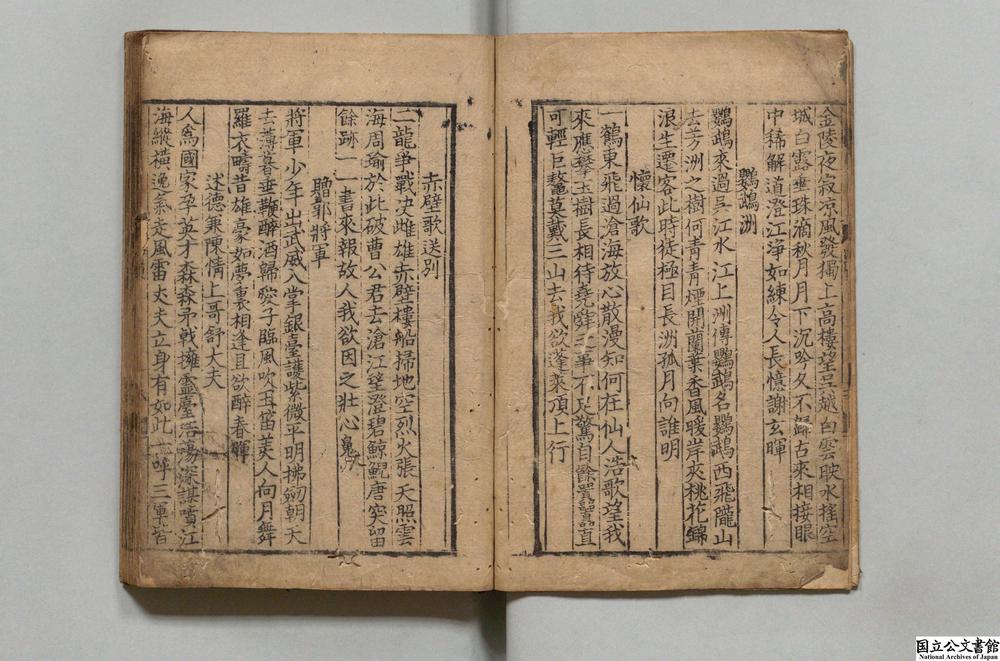 金陵夜寂凉風發獨上高樓望吳越白雲映水搖空
城白露垂珠滴秋月月下沉吟久不歸古來相接眼
中稀解道澄江淨如練令人長憶謝玄暉
鸚鵡洲
鸚鵡來過吳江水江上洲傳鸚鵡名鸚鵡西飛隴山
去芳洲之樹何青青煙開蘭葉香風暖岸夾桃花錦
浪生遷客此時徒極目長洲孤月向誰明
懷仙歌
一鶴東飛過滄海放心散漫知何在仙人浩歌望我
來應攀玉樹長相待堯舜之事不足驚自餘囂囂直
可輕巨鼇莫戴三山去我欲蓬萊頂上行
赤壁歌送別
二龍爭戰决雌雄赤壁樓船掃地空烈火張天照雲
海周瑜於此破曹公君去滄江望澄碧鯨鯢唐突留
餘跡一一書來報故人我欲因之壯心魄
贈郭將軍
將軍少年出武威入掌銀臺護紫微平明拂劒朝天
去薄暮垂鞭醉酒歸愛子臨風吹玉笛美人向月舞
羅衣疇昔雄豪如夢裏相逢且欲醉春暉
述德兼陳情上哥舒大夫
人爲國家孕英才森森矛戟擁靈臺浩蕩深謀噴江
海縱橫逸氣走風雷丈夫立身有如此一呼三軍皆
国立公文書館
National Archives of Japan